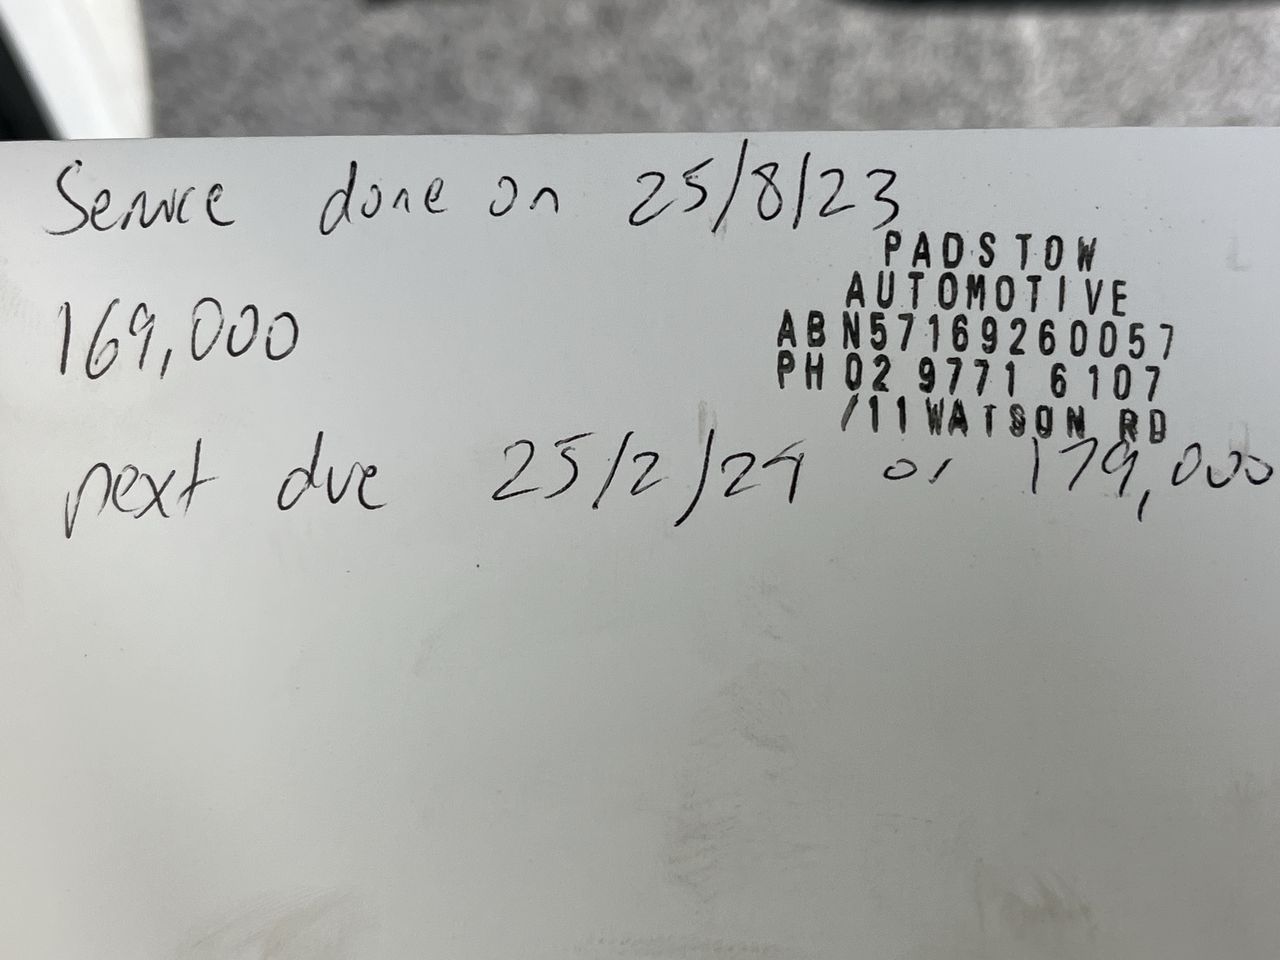 Service done on 25/8/23
PADSTOW
AUTOMOTIVE
169,000
ABN57169260057
PH 02 9771 6107
/11 WATSON RD
next due 25/2/24 or 179,000